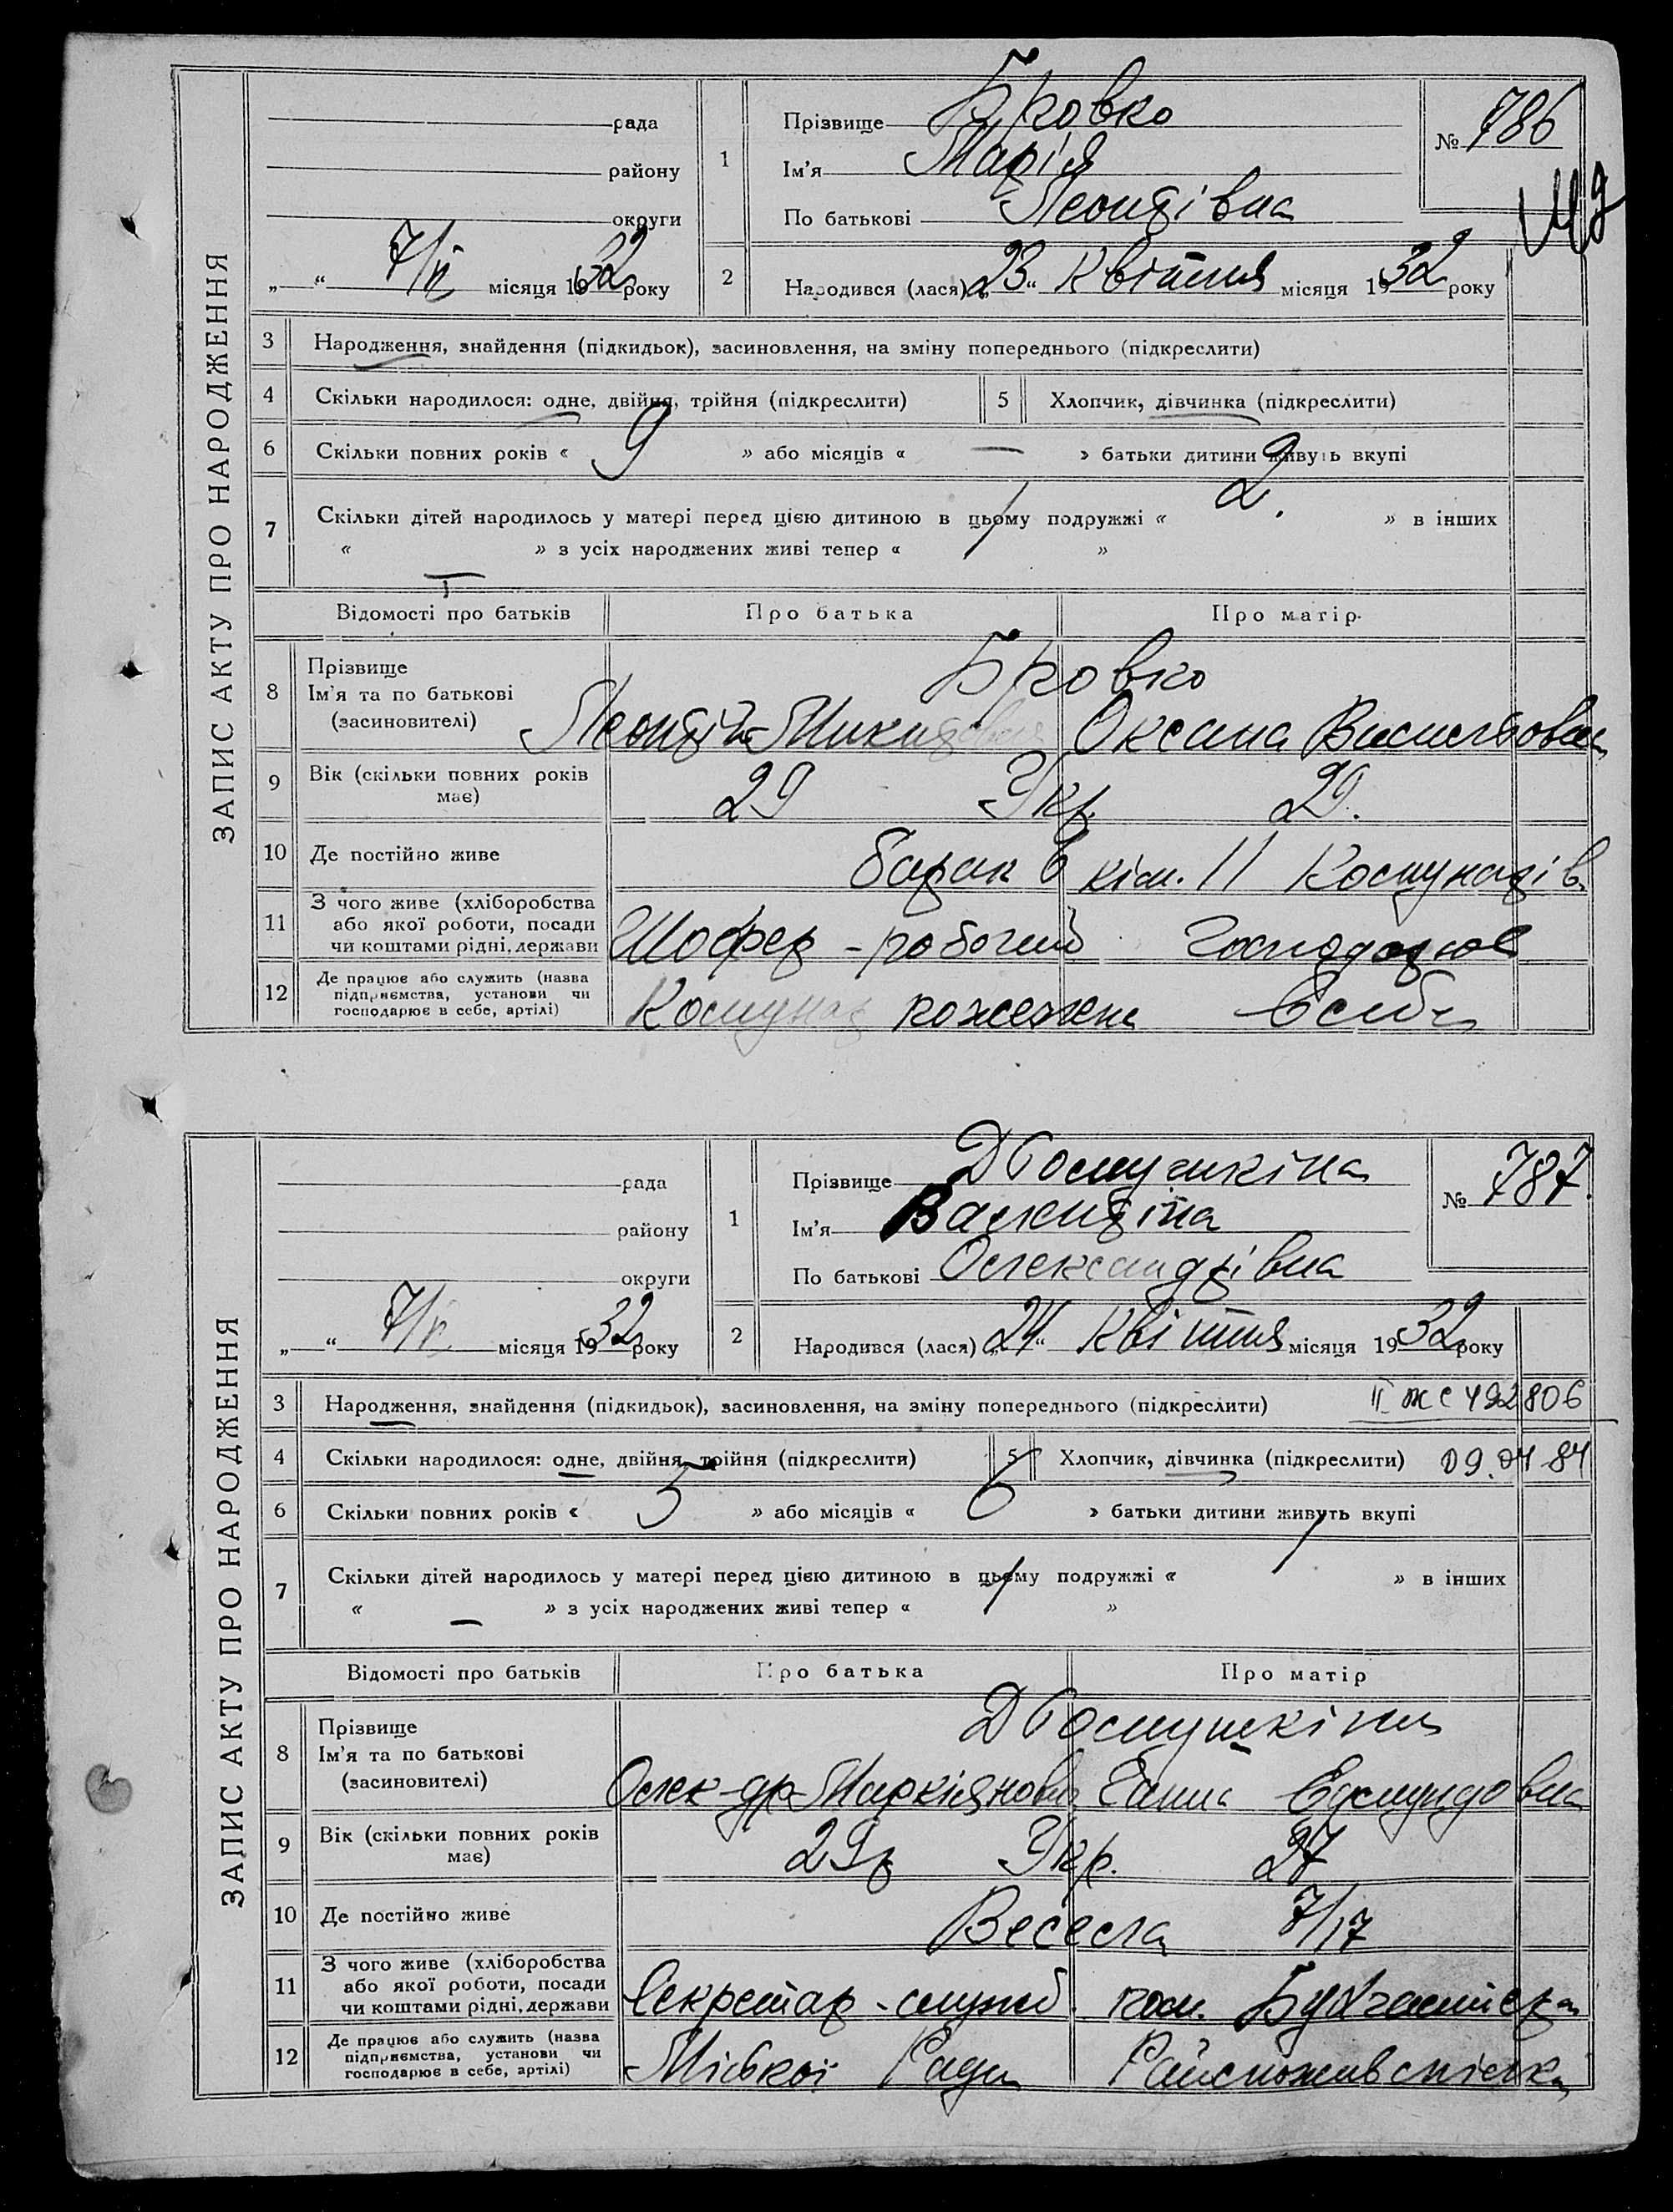 ЗАПИС АКТУ ПРО НАРОДЖЕННЯ
рада
району
округи
„ “ 7/V місяця 1932 року
1
Прізвище Бровко
Ім'я Марія
По батькові Леонтівна
№ 786
2
Народився (лася) „23“ Квітня місяця 1932 року
3 Народження, знайдення (підкидьок), засиновлення, на зміну попереднього (підкреслити)
4 Скільки народилося: одне, двійня, трійня (підкреслити)
5 Хлопчик, дівчинка (підкреслити)
6 Скільки повних років « 9 » або місяців « — » батьки дитини живуть вкупі
7 Скільки дітей народилось у матері перед цією дитиною в цьому подружжі « 2. » в інших
« — » з усіх народжених живі тепер « 1 »
Відомості про батьків Про батька Про матір
8 Прізвище
Ім'я та по батькові
(засиновителі)
Бровко
Леонтій Микитович Оксана Василівна
9 Вік (скільки повних років має)
29 Укр. 29.
10 Де постійно живе
барак 6 кім. 11
11 З чого живе (хліборобства або якої роботи, посади чи коштами рідні, держави
Шофер - робочий Господарює
12 Де працює або служить (назва підприємства, установи чи господарює в себе, артілі)
Комунар в себе
ЗАПИС АКТУ ПРО НАРОДЖЕННЯ
рада
району
округи
„ “ 7/V місяця 1932 року
1
Прізвище
Ім'я Валентіна
По батькові Олександрівна
№ 787.
2
Народився (лася) „24“ Квітня місяця 1932 року
3 Народження, знайдення (підкидьок), засиновлення, на зміну попереднього (підкреслити) II ЖС 492806
4 Скільки народилося: одне, двійня, трійня (підкреслити)
5 Хлопчик, дівчинка (підкреслити) 09.04 84
6 Скільки повних років « 5 » або місяців « 6 » батьки дитини живуть вкупі
7 Скільки дітей народилось у матері перед цією дитиною в цьому подружжі « 1 » в інших
« — » з усіх народжених живі тепер « 1 »
Відомості про батьків Про батька Про матір
8 Прізвище
Ім'я та по батькові
(засиновителі)
Олек-др Маркіянович Ганна Едмундовна
9 Вік (скільки повних років має)
29р Укр. 27
10 Де постійно живе
Весела 7/17
11 З чого живе (хліборобства або якої роботи, посади чи коштами рідні, держави
Секретар - служб. пом. Бухгалтера
12 Де працює або служить (назва підприємства, установи чи господарює в себе, артілі)
Міської Ради Райспоживспілка